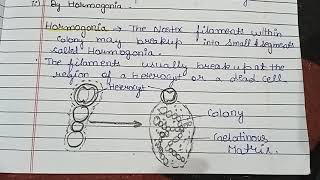 (c) By Hormogonia
Hormogonia → The Nostoc filaments within
colony may breakup into small segments
called Hormogonia.
The filaments usually breakup at the
region of a Heterocyst or a dead cell
Heterocyst
Colony
Gelatinous
Matrix.